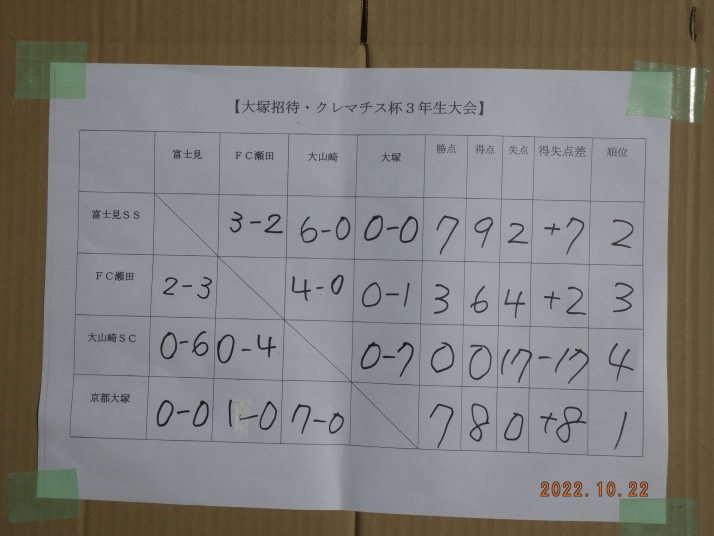 【大塚招待・クレマチス杯３年生大会】
富士見 ＦＣ瀬田 大山崎 大塚 勝点 得点 失点 得失点差 順位
富士見ＳＳ 3-2 6-0 0-0 7 9 2 +7 2
ＦＣ瀬田 2-3 4-0 0-1 3 6 4 +2 3
大山崎ＳＣ 0-6 0-4 0-7 0 0 17 -17 4
京都大塚 0-0 1-0 7-0 7 8 0 +8 1
2022.10.22